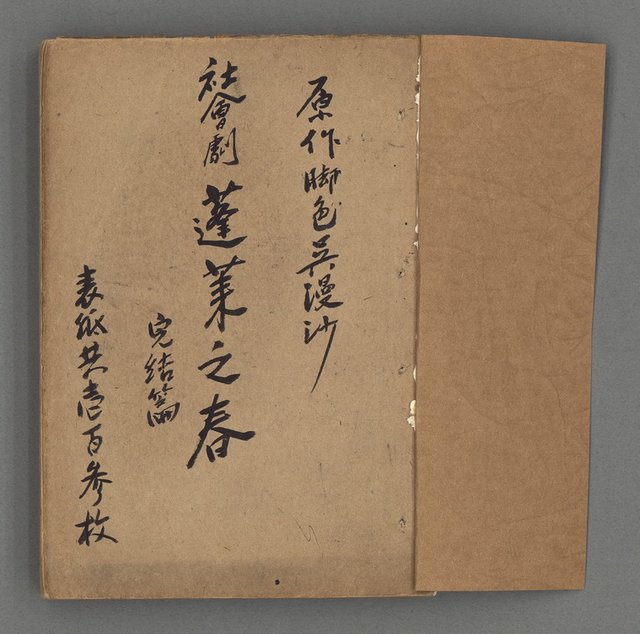 原作脚色吳漫沙
社會劇 蓬萊之春
完結篇
表紙共壱百参枚